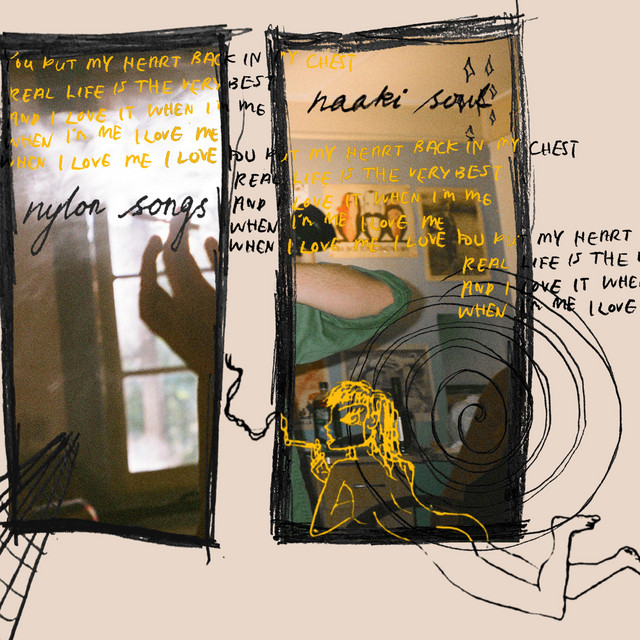 YOU PUT MY HEART BACK IN MY CHEST
REAL LIFE IS THE VERY BEST
AND I LOVE IT WHEN I'M ME
WHEN I'M ME I LOVE ME
WHEN I LOVE ME I LOVE YOU PUT MY HEART BACK IN MY CHEST
REAL LIFE IS THE VERY BEST
AND I LOVE IT WHEN I'M ME
WHEN I'M ME I LOVE ME
WHEN I LOVE ME I LOVE YOU PUT MY HEART
REAL LIFE IS THE
AND I LOVE IT WHEN
WHEN I'M ME I LOVE
nylon songs
naaki soul